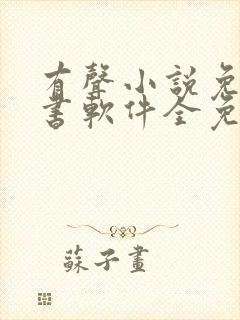 有聲小説免
書軟件全免
蘇子畫